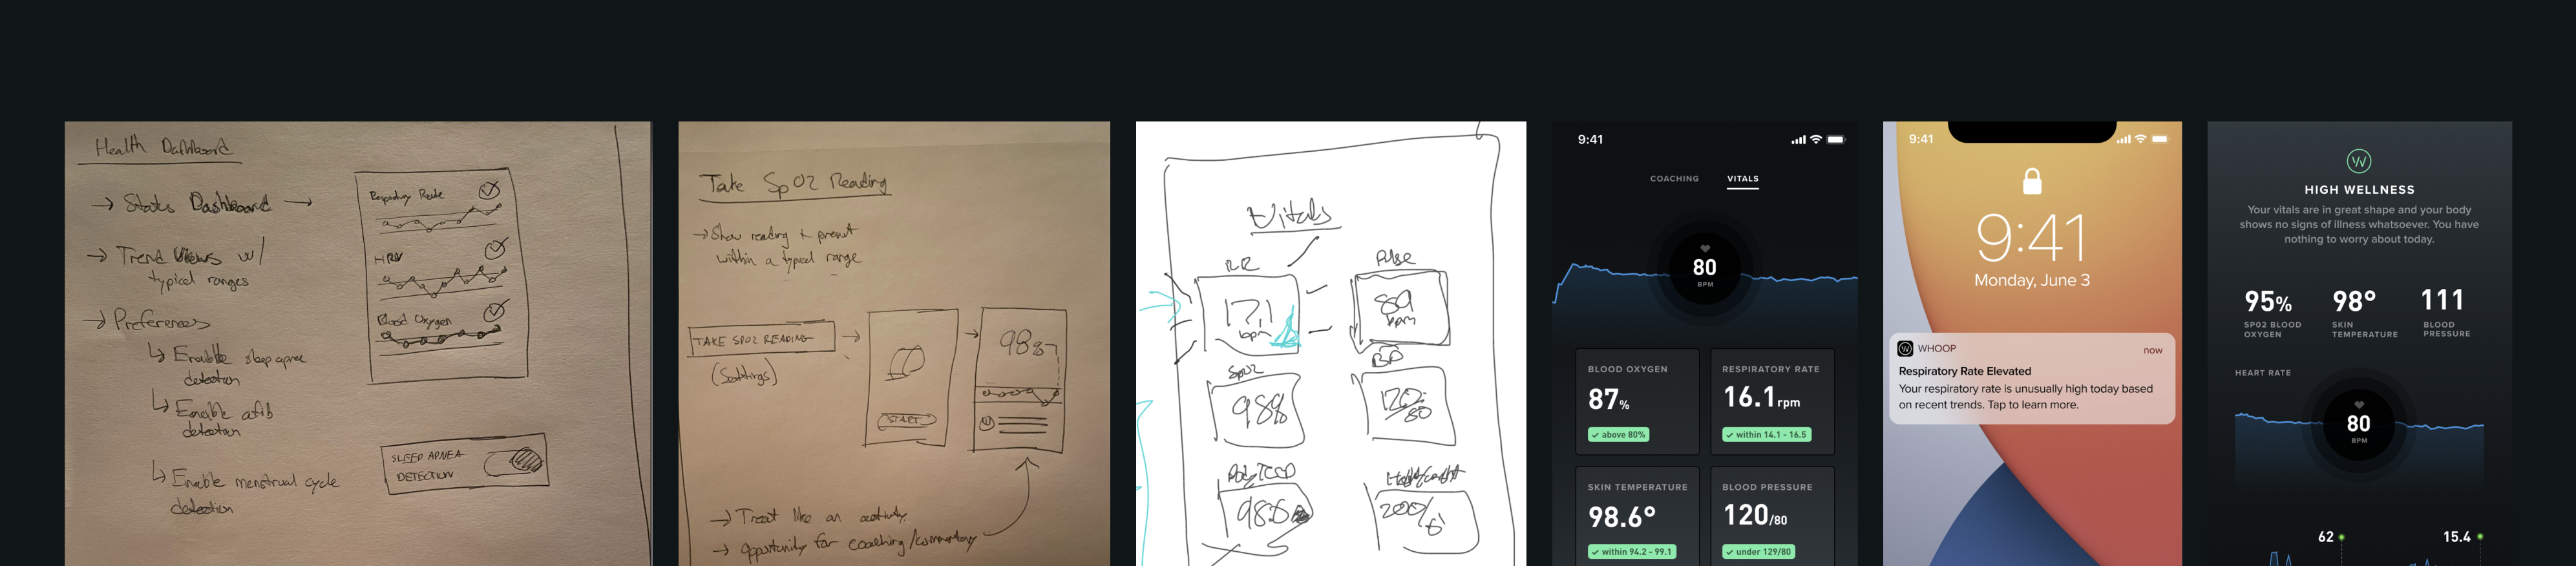 Health Dashboard
→ Stats Dashboard →
→ Trend Views w/
typical ranges
→ Preferences
↳ Enable sleep apnea
detection
↳ Enable afib
detection
↳ Enable menstrual cycle
detection
Respiratory Rate
HRV
Blood Oxygen
SLEEP APNEA
DETECTION
Take SpO2 Reading
→ Show reading + present
within a typical range
TAKE SPO2 READING
(Settings)
START
98%
→ Treat like an activity.
→ opportunity for coaching/commentary
Vitals
RR
Pulse
17.1
bpm
89
bpm
SpO2
BP
98%
120/80
Body Temp
98.6
200/6'
9:41
COACHING VITALS
80
BPM
BLOOD OXYGEN
87%
✓ above 80%
RESPIRATORY RATE
16.1 rpm
✓ within 14.1 - 16.5
SKIN TEMPERATURE
98.6°
✓ within 94.2 - 99.1
BLOOD PRESSURE
120/80
✓ under 129/80
9:41
9:41
Monday, June 3
WHOOP now
Respiratory Rate Elevated
Your respiratory rate is unusually high today based
on recent trends. Tap to learn more.
HIGH WELLNESS
Your vitals are in great shape and your body
shows no signs of illness whatsoever. You have
nothing to worry about today.
95% 98° 111
SP02 BLOOD
OXYGEN
SKIN
TEMPERATURE
BLOOD
PRESSURE
HEART RATE
80
BPM
62
15.4